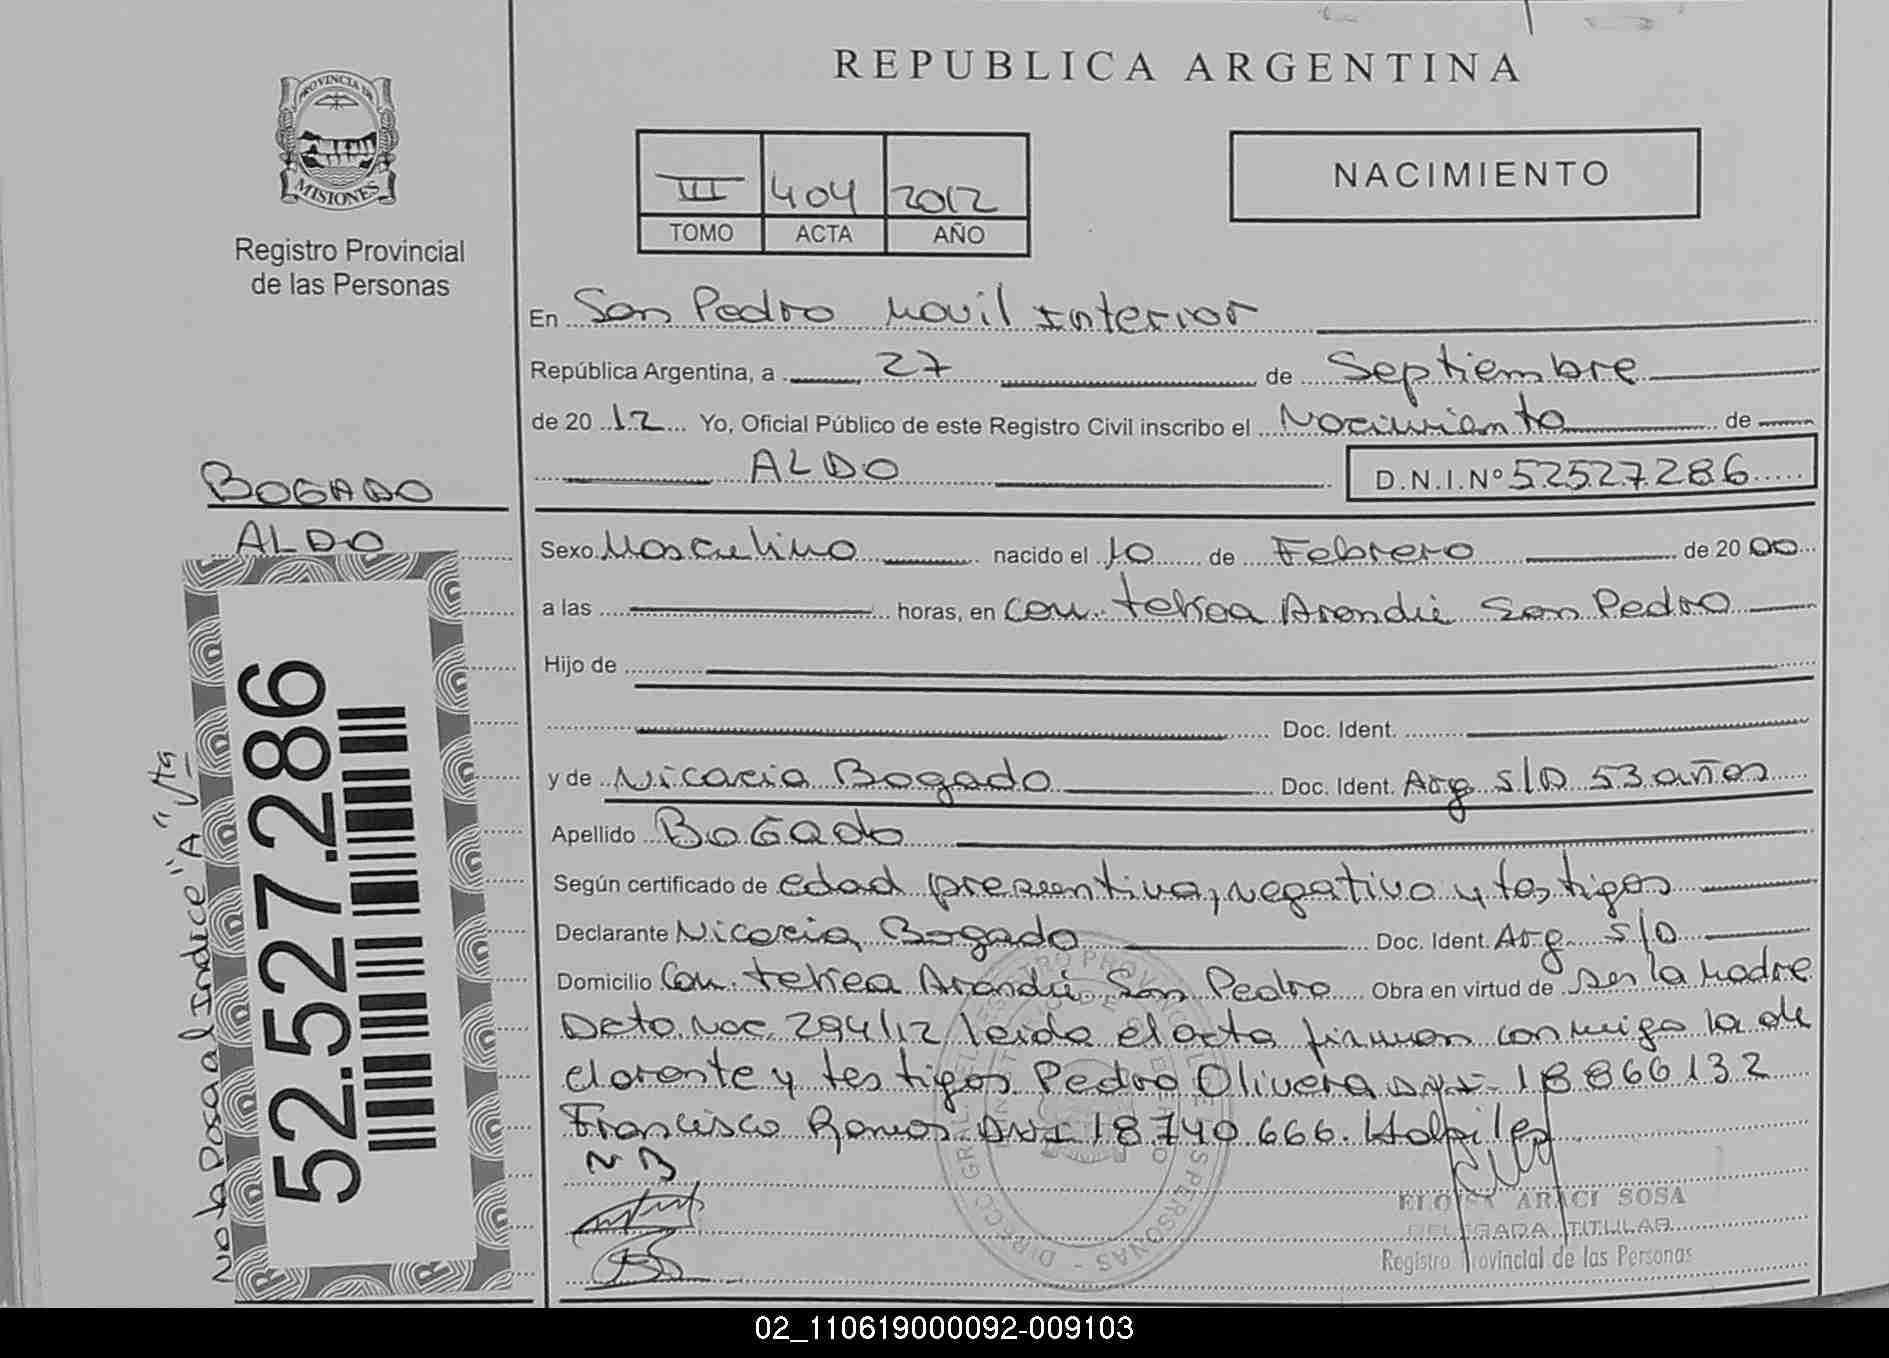 REPUBLICA ARGENTINA
PROVINCIA DE
MISIONES
Registro Provincial
de las Personas
III 404 2012
TOMO ACTA AÑO
NACIMIENTO
En San Pedro Movil Interior
República Argentina, a 27 de Septiembre
de 20 12 Yo, Oficial Público de este Registro Civil inscribo el Nacimiento de
ALDO D.N.I.Nº 52527286
BOGADO
ALDO
Sexo Masculino nacido el 10 de Febrero de 20 00
a las horas, en Com. tekoa Arandú San Pedro
Hijo de
Doc. Ident.
y de Nicacia Bogado Doc. Ident. Arg S/D 53 años
Apellido BOGADO
Según certificado de edad presuntiva, negativo y testigos
Declarante Nicacia Bogado Doc. Ident. Arg S/D
Domicilio Com. tekoa Arandú San Pedro Obra en virtud de ser la Madre
Dcto. Nac. 294/12 leida el acta firman conmigo la de
clarante y testigos Pedro Olivera DNI 18866132
Francisco Ramos DNI 18740666.
N B
ELOISA ARACI SOSA
DELEGADA TITULAR
Registro Provincial de las Personas
52.527.286
Nota Pasa al Indice "A"
02_110619000092-009103